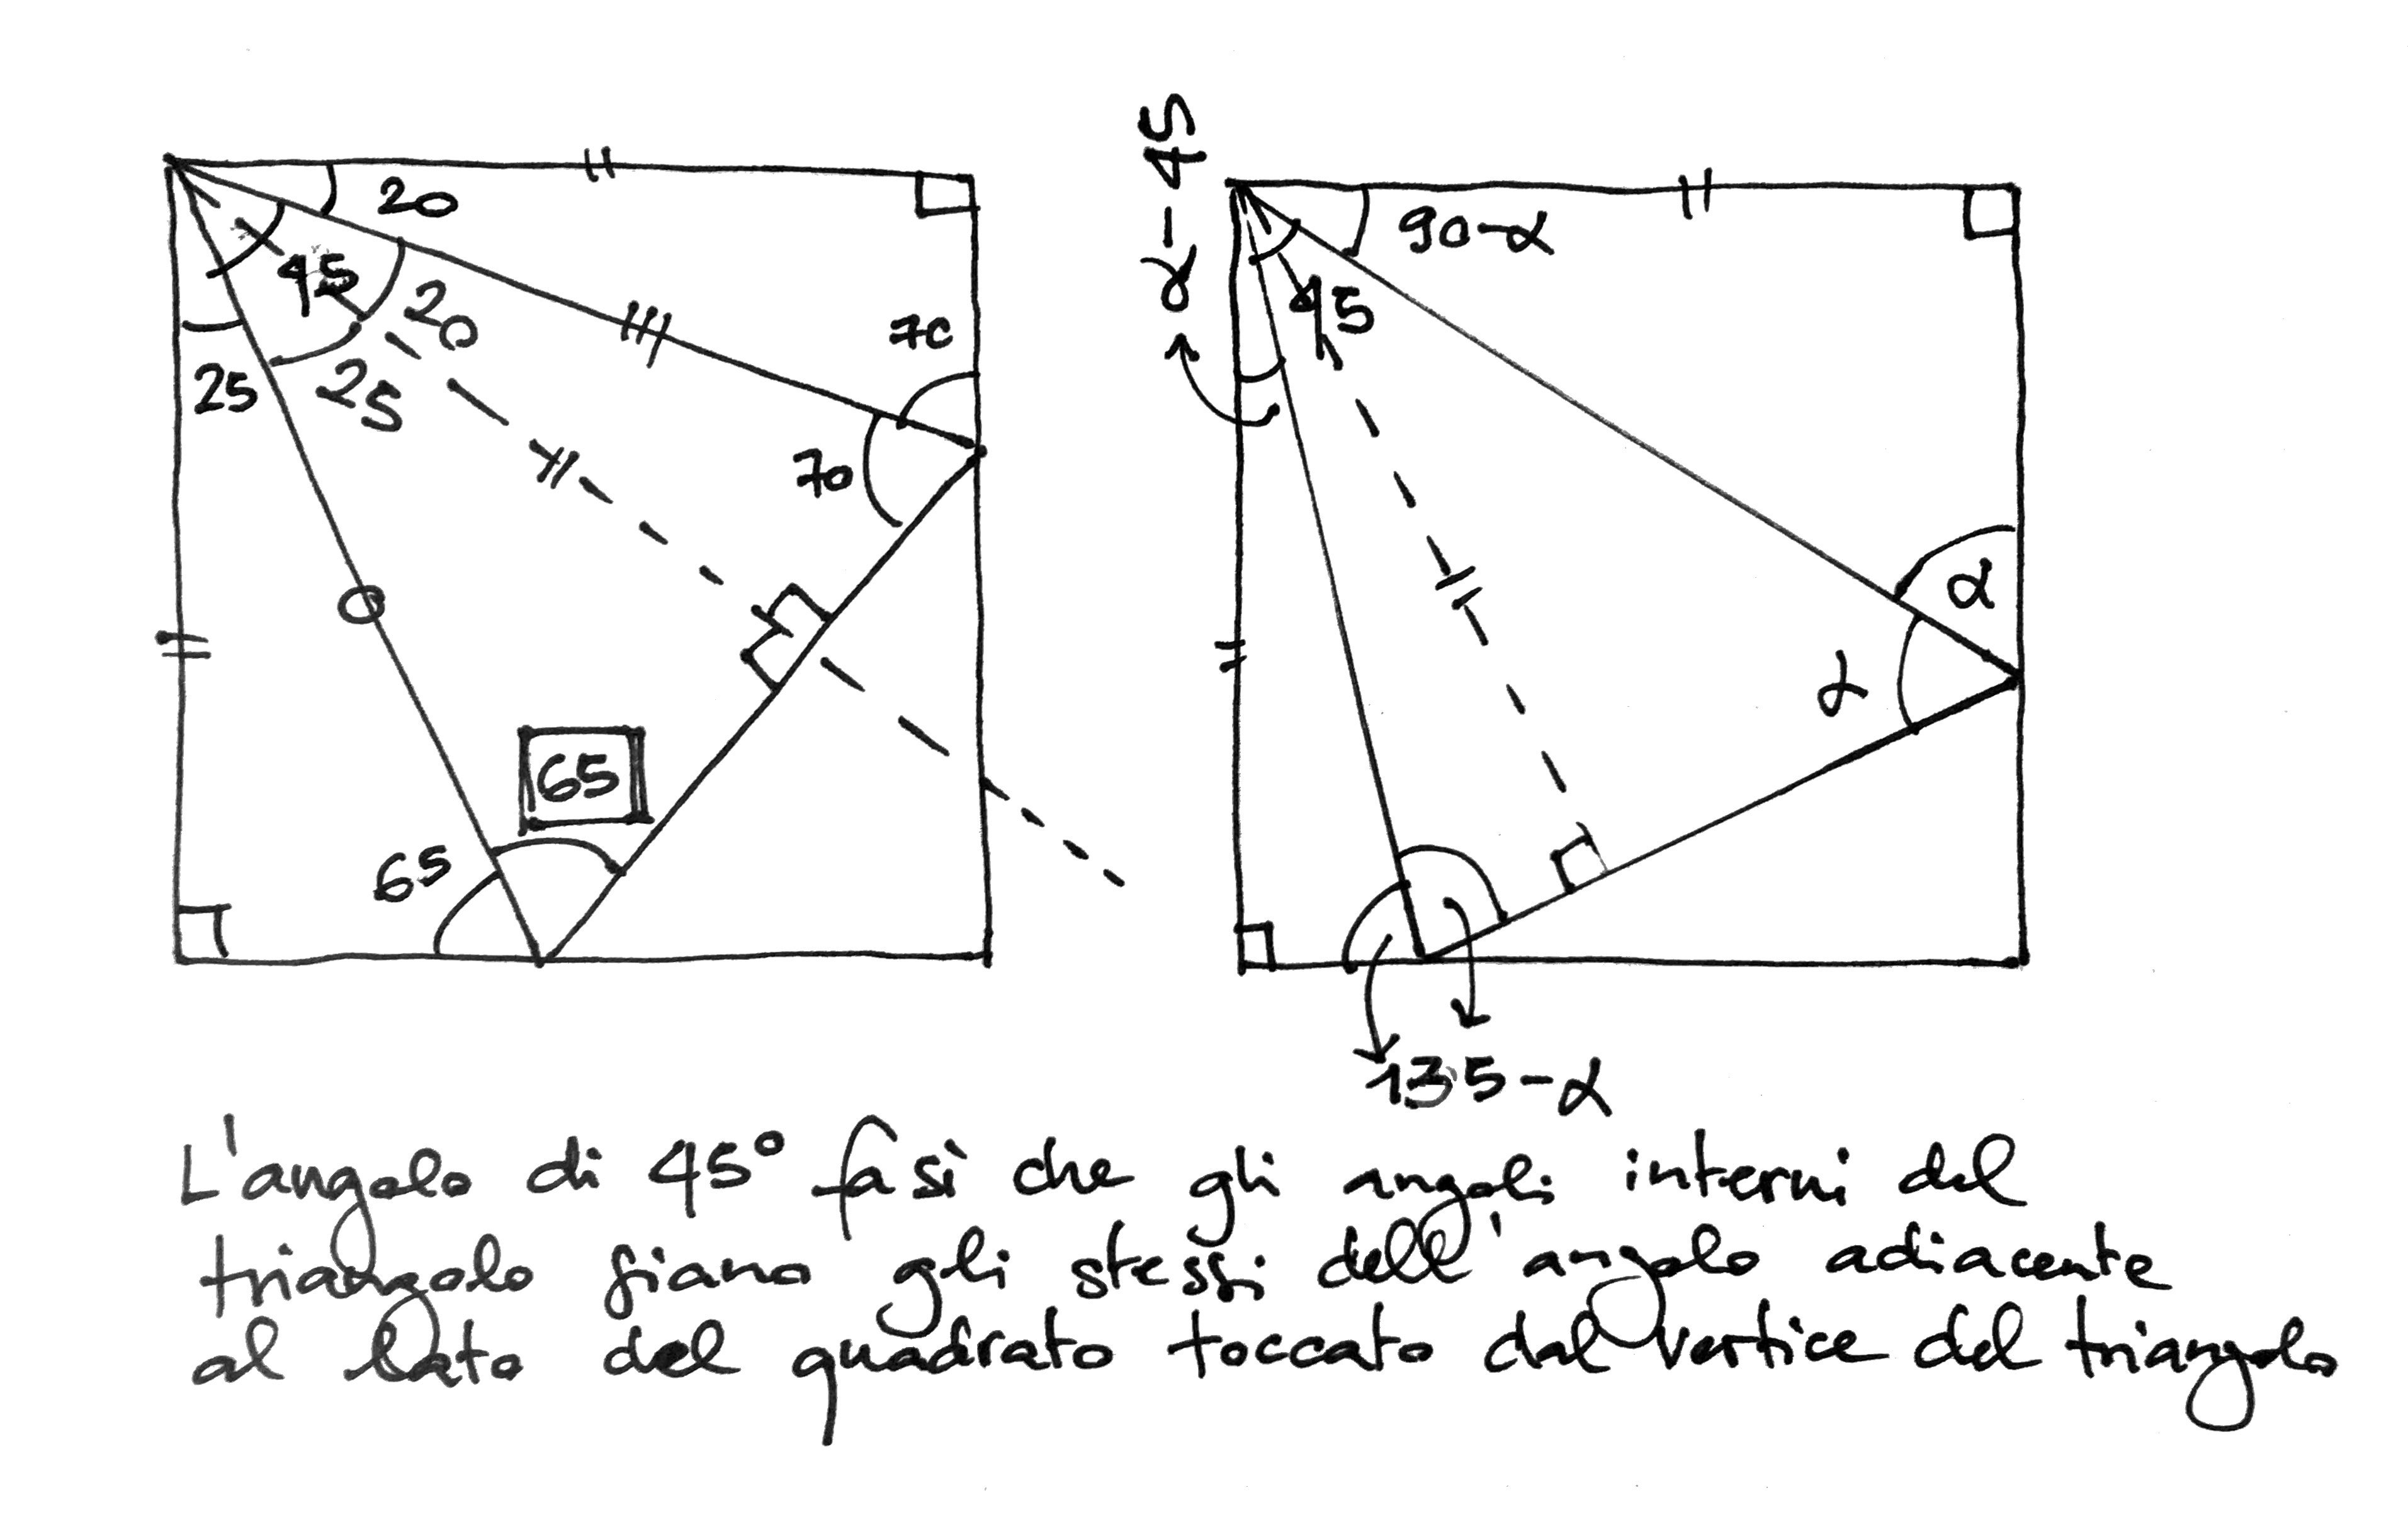 α-45
20
90-α
45
20
45
70
25
25
70
α
α
65
65
135-α
L'angolo di 45° fa sì che gli angoli interni del
triangolo siano gli stessi dell'angolo adiacente
al lato del quadrato toccato dal vertice del triangolo